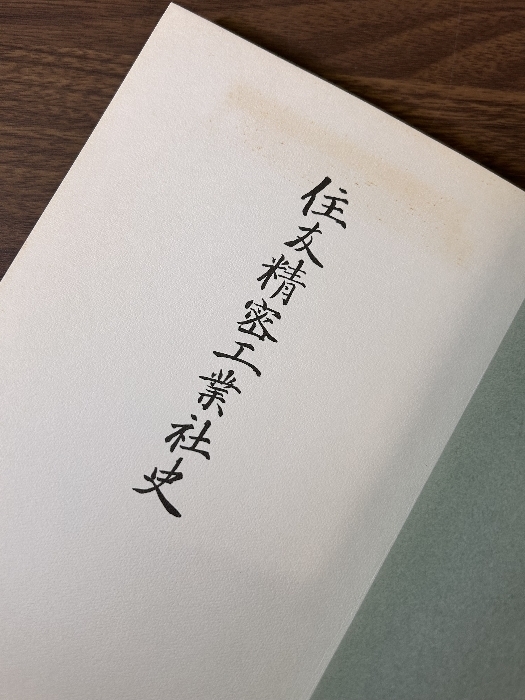 住友精密工業社史